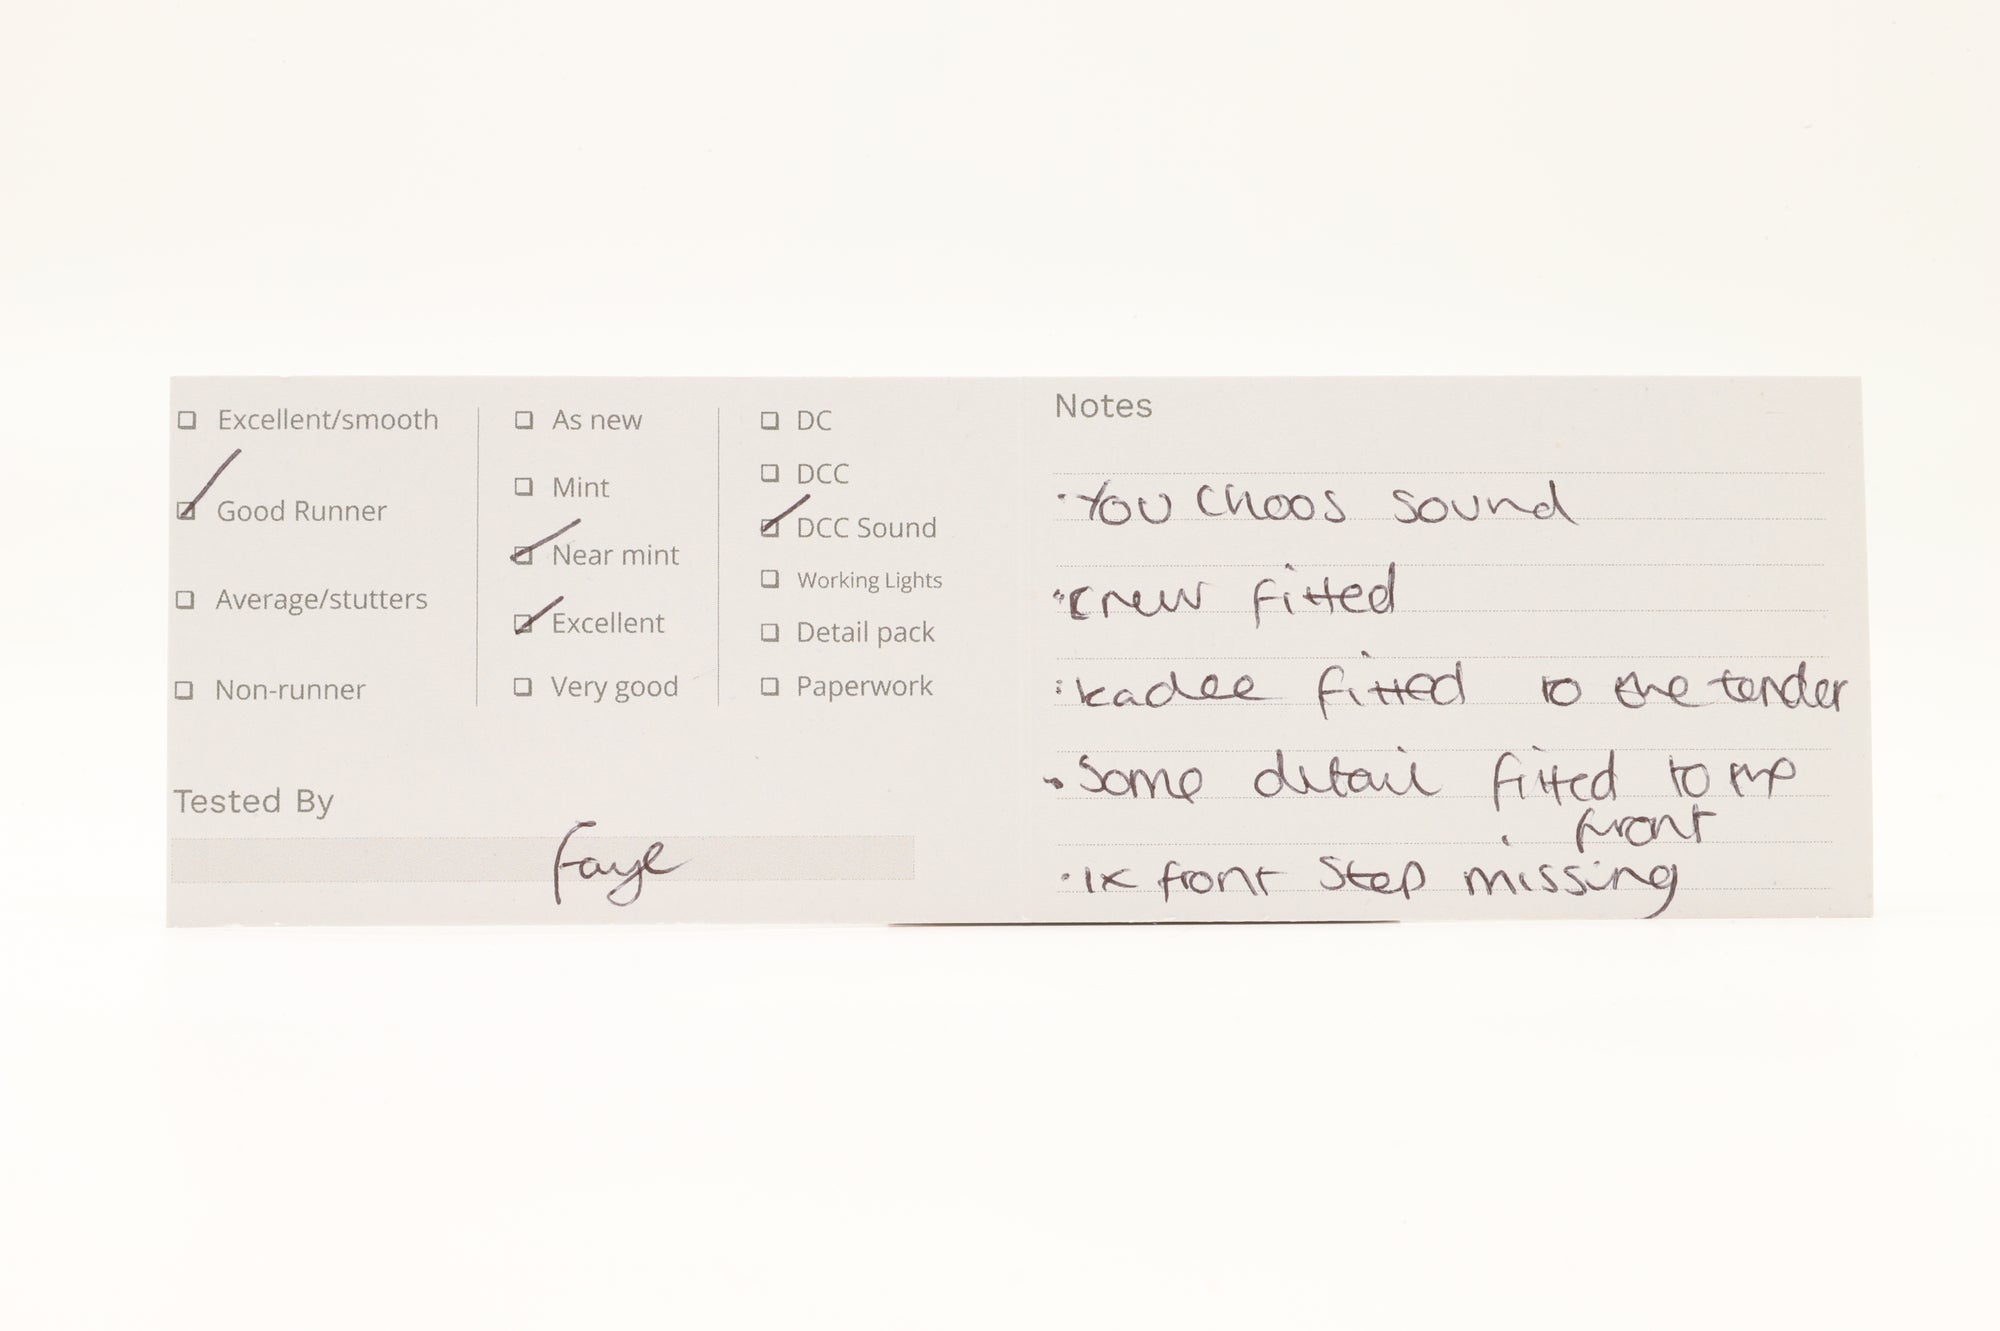 Excellent/smooth
Good Runner
Average/stutters
Non-runner
As new
Mint
Near mint
Excellent
Very good
DC
DCC
DCC Sound
Working Lights
Detail pack
Paperwork
Tested By
Faye
Notes
·You Choos Sound
·Crew fitted
·kadee fitted to the tender
·Some detail fitted to the
front
·1x front Step missing